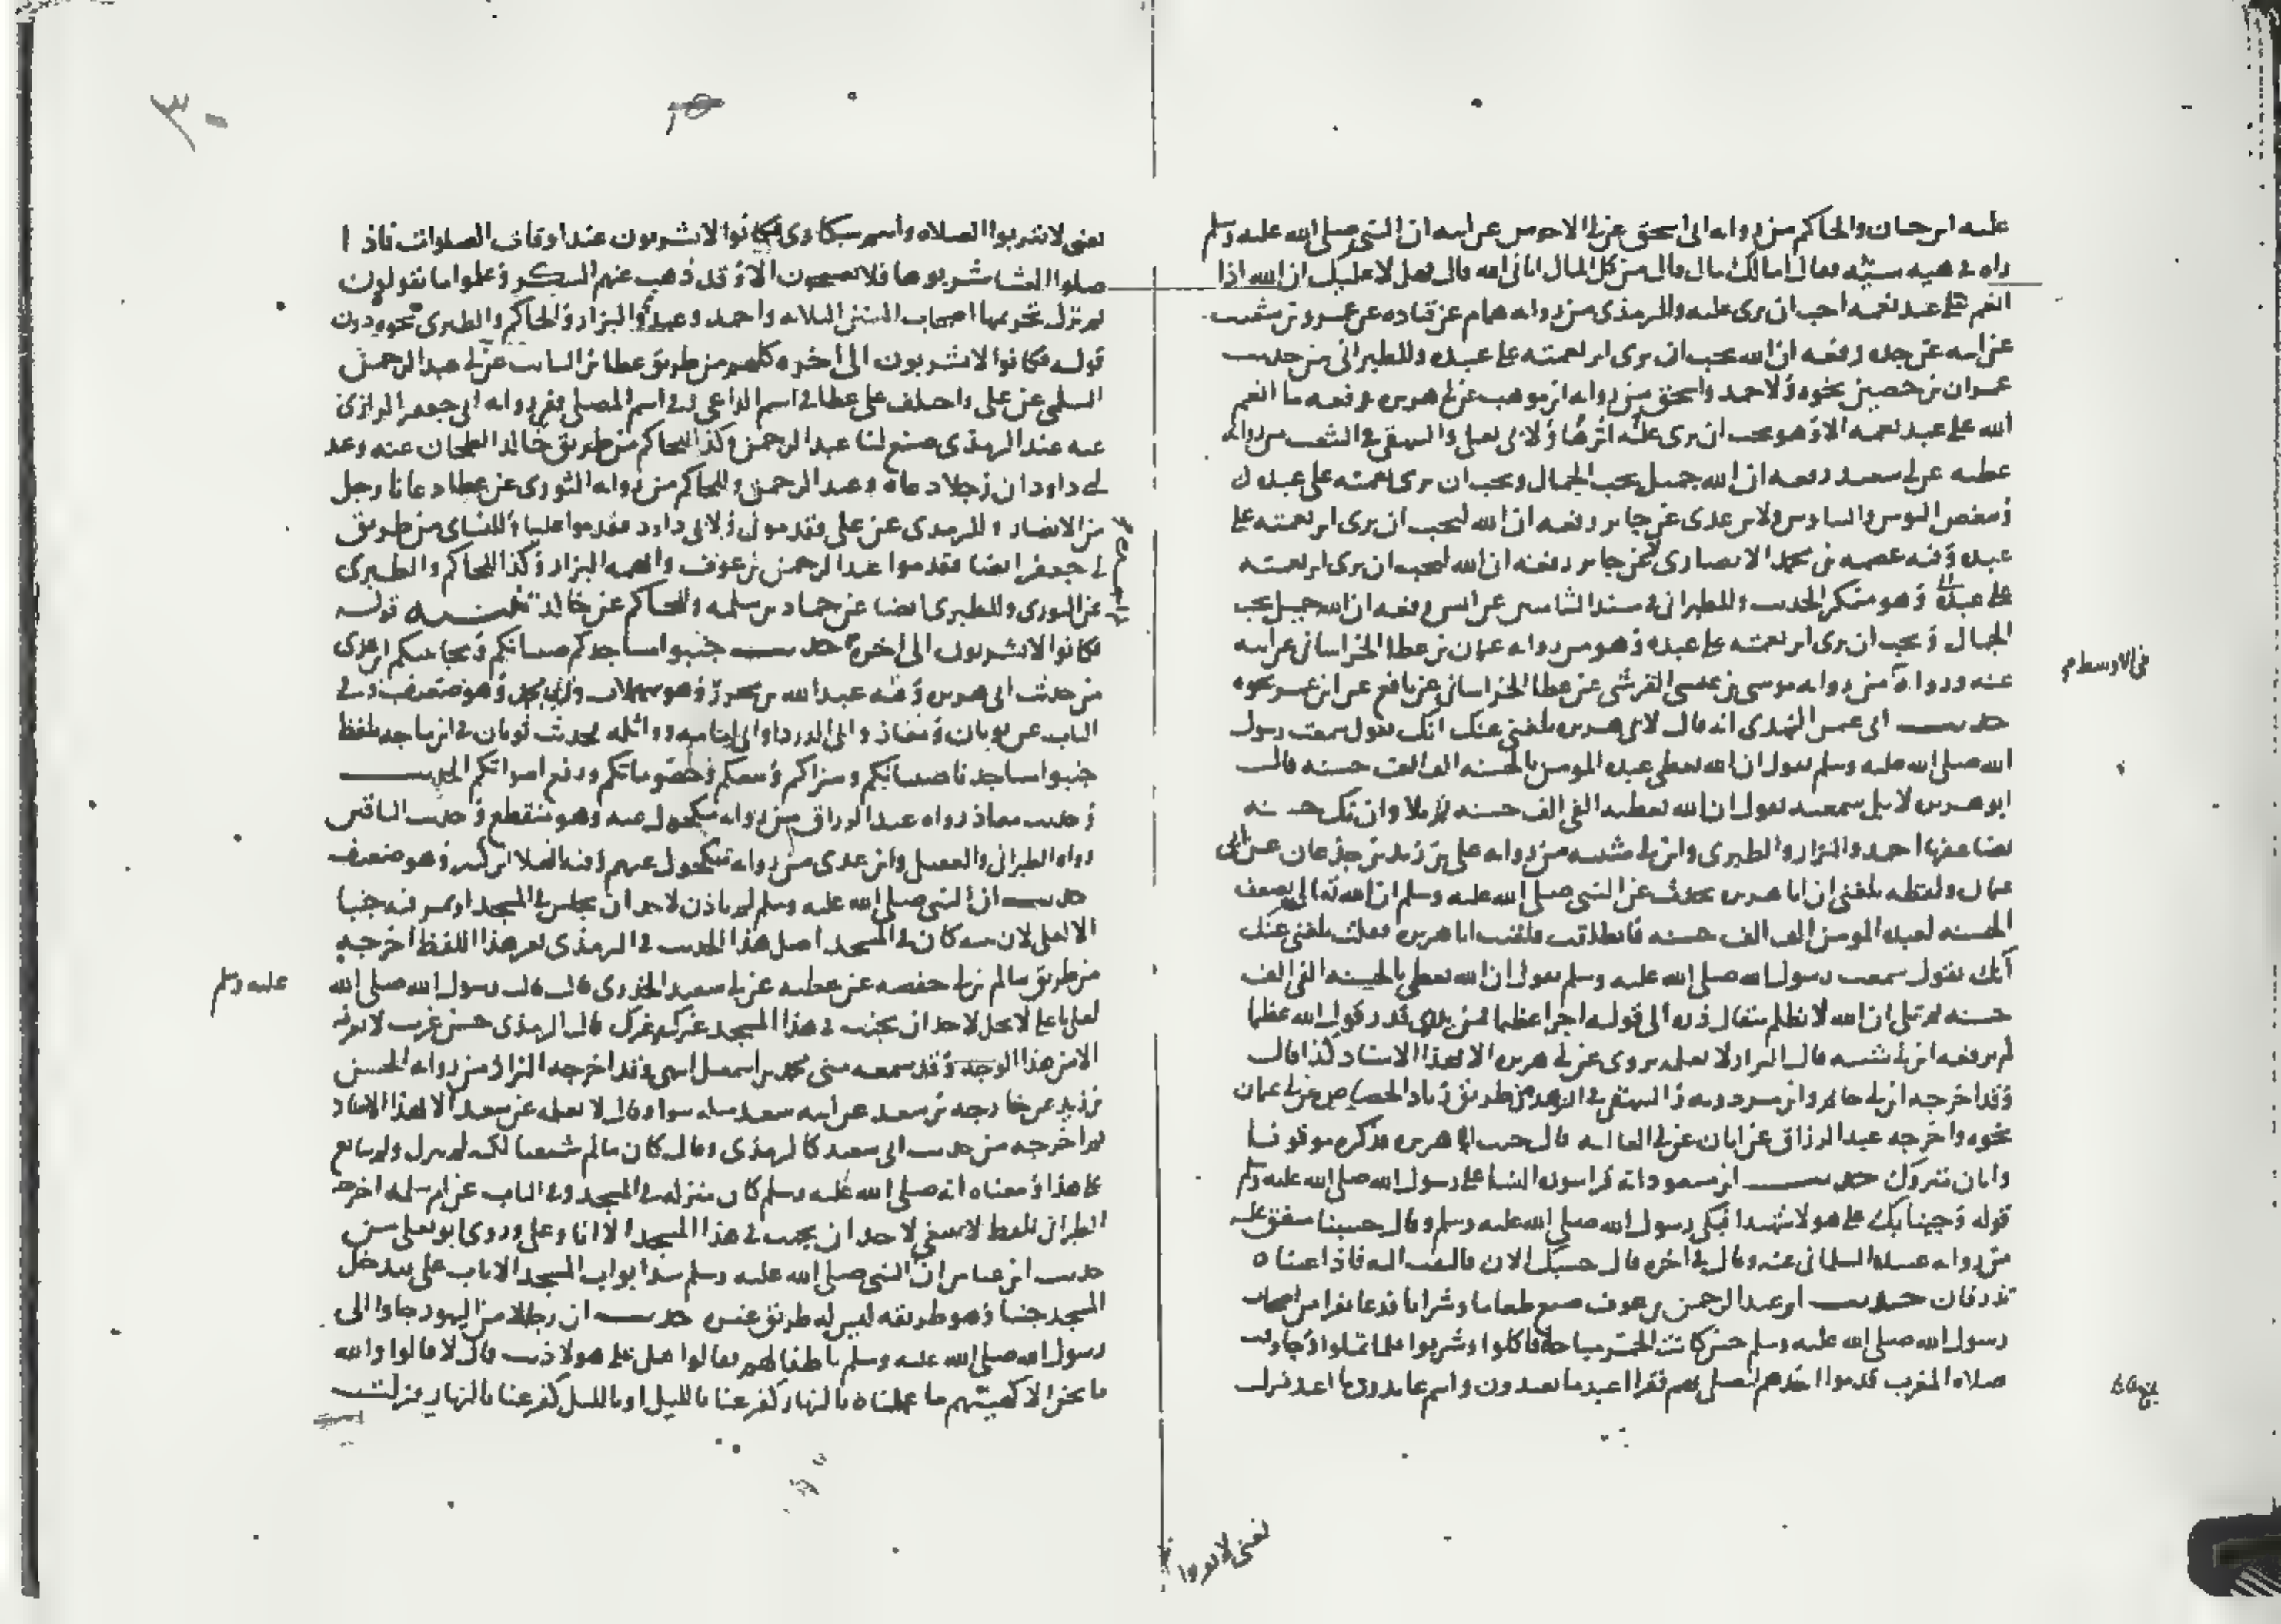 عليه ابن حبان والحاكم من رواية ابى اسحق عن ابى الاحوص عن ابيه ان النبى صلى الله عليه وسلم
راه فى هيه سيئه فقال امالك مال قال من كل المال اتانى الله قال فهل لا عليك ان الله اذا
انعم على عبد نعمه احب ان يرى عليه وللترمذى من رواية همام عن قتاده عن عمرو بن شعيب
عن ابيه عن جده رفعه ان الله يحب ان يرى اثر نعمته على عبده وللطبرانى من حديث
عمران بن حصين نحوه ولاحمد واسحق من رواية ابن موهب عن ابى هريره رفعه ما انعم
الله على عبد نعمه الا وهو يحب ان يرى عليه اثرها ولابى يعلى والبيهقى فى الشعب من رواية
عطيه عن ابى سعيد رفعه ان الله جميل يحب الجمال ويحب ان يرى نعمته على عبده
ويبغض البوس والتباوس ولابن عدى عن جابر رفعه ان الله ليحب ان يرى اثر نعمته على
عبده وفيه عصمه بن محمد الانصارى عن جابر رفعه ان الله ليحب ان يرى اثر نعمته
على عبده وهو منكر الحديث وللطبرانى فى مسند الشاميين عن انس رفعه ان الله جميل يحب
الجمال ويحب ان يرى اثر نعمته على عبده وهو من رواية عثمان بن عطا الخراسانى عن ابيه
عنه ورواه من رواية موسى بن عيسى القرشى عن عطا الخراسانى عن نافع عن ابن عمر نحوه
فى الاوسط
حديث ابى عثمن النهدى انه قال لابى هريره بلغنى عنك انك تقول سمعت رسول
الله صلى الله عليه وسلم يقول ان الله يعطى عبده المومن بالحسنه الف الف حسنه قال
ابو هريره لا بل سمعته يقول ان الله يعطيه الفى الف حسنه ثم تلا وان تك حسنه
يضاعفها احمد والبزار والطبرى وابن ابى شيبه من رواية على بن زيد بن جدعان عن ابى
عثمان ولفظه بلغنى ان ابا هريره يحدث عن النبى صلى الله عليه وسلم ان الله تعالى يضعف
الحسنه لعبده المومن الف الف حسنه فانطلقت فلقيت ابا هريره فقلت بلغنى عنك
انك تقول سمعت رسول الله صلى الله عليه وسلم يقول ان الله يعطى بالحسنه الفى الف
حسنه ثم تلى ان الله لا يظلم مثقال ذره الى قوله اجرا عظيما فمن يدرى قدر قول الله عظيما
لم يرفعه ابن ابى شيبه قال البزار ولا نعلمه يروى عن ابى هريره الا بهذا الاسناد كذا قال
وقد اخرجه ابن ابى حاتم وابن مردويه والبيهقى فى الزهد من طريق زياد الجصاص عن ابى عثمان
نحوه واخرجه عبد الرزاق عن ابان عن ابى العاليه قال جيت ابا هريره فذكره موقوفا
وابان متروك حديث ابن مسعود انه قرا سورة النسا على رسول الله صلى الله عليه وسلم
قوله وجينا بك على هولا شهيدا فبكى رسول الله صلى الله عليه وسلم وقال حسبنا متفق عليه
من رواية عبيده السلمانى عنه وقال فى اخره قال حسبك الان فالتفت اليه فاذا عيناه
تذرفان حديث ان عبد الرحمن بن عوف صنع طعاما وشرابا فدعا نفرا من اصحاب
رسول الله صلى الله عليه وسلم حين كانت الخمر مباحة فاكلوا وشربوا فلما ثملوا وجاوت
صلاه المغرب قدموا احدهم ليصلى بهم فقرا اعبد ما تعبدون وانتم عابدون ما اعبد فنزلت
يعنى لا تقربوا
٣٠
يعنى لا تقربوا الصلاه وانتم سكارى فكانوا لا يشربون عند اوقات الصلوات فاذا
صلوا العشا شربوها فلا يصبحون الا وقد ذهب عنهم السكر وعلموا ما يقولون
ثم نزل تحريمها اصحاب السنن الثلاثه واحمد وعبد والبزار والحاكم والطبرى نحوه دون
قوله فكانوا لا يشربون الى اخره كلهم من طريق عطا بن السايب عن ابى عبد الرحمن
السلمى عن على واختلف على عطا فى اسم الداعى وفى اسم المصلى ففى رواية ابى جعفر الرازى
عنه عند الترمذى صنع لنا عبد الرحمن وكذا للحاكم من طريق خالد الطحان عنه وعند
ابى داود ان رجلا دعاه وعبد الرحمن وللحاكم من رواية الثورى عن عطا دعانا رجل
من الانصار وللترمذى عن على وقدمونى ولابى داود فقدموا عليا وللنساى من طريق
ابى جعفر ايضا فقدموا عبد الرحمن بن عوف وابهمه البزار وكذا للحاكم والطبرى
عن الثورى وللطبرى ايضا عن حماد بن سلمه وللحاكم عن خالد تنبيه قوله
فكانوا لا يشربون الى اخره حديث جنبوا مساجدكم صبيانكم ومجانينكم ابن عدى
من حديث ابى هريره وفيه عبد الله بن محرر وهو ضعيف وفى
الباب عن ثوبان ومعاذ وابى الدردا وابى امامه وواثله فحديث ثوبان فى ابن ماجه بلفظ
جنبوا مساجدنا صبيانكم وشراكم وبيعكم وخصوماتكم ورفع اصواتكم الحديث
وحديث معاذ رواه عبد الرزاق من رواية مكحول عنه وهو منقطع وحديث الباقين
رواه الطبرانى والعقيلى وابن عدى من رواية مكحول عنهم وفيه العلا بن كثير وهو ضعيف
حديث ان النبى صلى الله عليه وسلم لم ياذن لاحد ان يجلس فى المسجد او يمر فيه جنبا
الا لعلى لان بيته كان فى المسجد اصل هذا الحديث فى الترمذى بغير هذا اللفظ اخرجه
من طريق سالم بن ابى حفصه عن عطيه عن ابى سعيد الخدرى قال قال رسول الله صلى الله
عليه وسلم
لعلى يا على لا يحل لاحد ان يجنب فى هذا المسجد غيرى وغيرك قال الترمذى حسن غريب لا نعرفه
الا من هذا الوجه وقد سمعه منى محمد بن اسمعيل انتهى وقد اخرجه البزار من رواية الحسن
بن زيد عن خارجه بن سعد عن ابيه سعد مثله سوا وقال لا نعلمه عن سعد الا بهذا الاسناد
ثم اخرجه من حديث ابى سعيد كالترمذى وقال كان سالم شيعيا لكنه لم يترك ولم يتابع
على هذا ومعناه انه صلى الله عليه وسلم كان منزله فى المسجد وفى الباب عن ام سلمه اخرجه
الطبرانى بلفظ لا ينبغى لاحد ان يجنب فى هذا المسجد الا انا وعلى وروى ابو يعلى من
حديث ابن عباس ان النبى صلى الله عليه وسلم سد ابواب المسجد الا باب على فيدخل
المسجد جنبا وهو طريقه ليس له طريق غيره حديث ان رجالا من اليهود جاوا الى
رسول الله صلى الله عليه وسلم باطفالهم فقالوا هل على هولا ذنب قال لا قالوا والله
ما نحن الا كهيئتهم ما عملناه بالنهار كفر عنا بالليل او بالليل كفر عنا بالنهار فنزلت